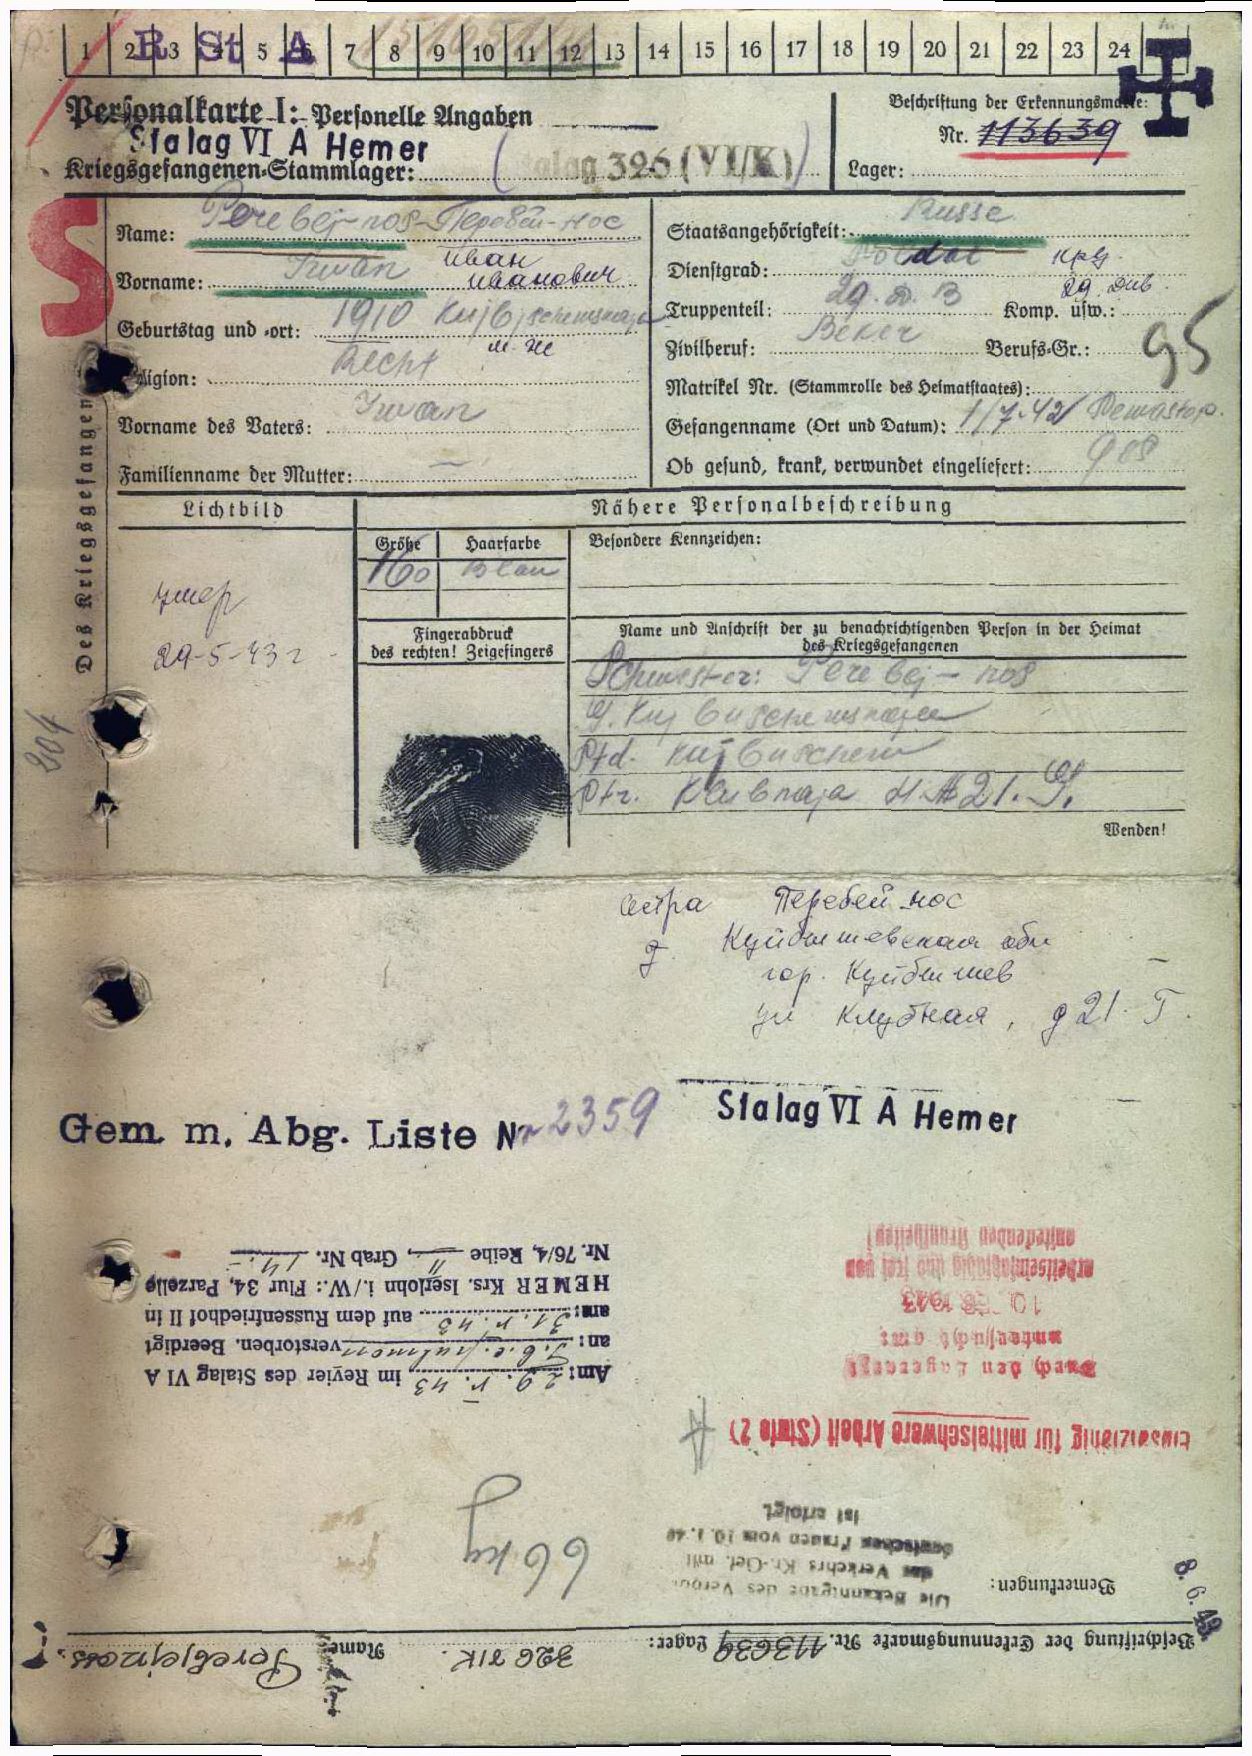 1 2 3 4 5 6 7 8 9 10 11 12 13 14 15 16 17 18 19 20 21 22 23 24
R St A
Personalkarte I: Personelle Angaben
Beschriftung der Erkennungsmarke:
Stalag VI A Hemer
Nr. 113639
Kriegsgefangenen-Stammlager: Stalag 326 (VI/K)
Lager:
S
Des Kriegsgefangenen
Name: Perebej-nos - Перебей-нос
Staatsangehörigkeit: Russe
Vorname: Iwan Иван Иванович
Dienstgrad: Soldat кр-ц
Truppenteil: 29. D. 3 29 див. Komp. usw.:
Geburtstag und -ort: 1910 Kujbyschewskaja
Zivilberuf: Beker Berufs-Gr.: 95
Religion: Recht
Matrikel Nr. (Stammrolle des Heimatstaates):
Vorname des Vaters: Iwan
Gefangenname (Ort und Datum): 1/7.42
Familienname der Mutter: —
Ob gesund, krank, verwundet eingeliefert: ges
Lichtbild
Nähere Personalbeschreibung
Größe Haarfarbe
Besondere Kennzeichen:
160 Blau
умер
29-5-43 г
Fingerabdruck
des rechten! Zeigefingers
Name und Anschrift der zu benachrichtigenden Person in der Heimat
des Kriegsgefangenen
Schwester: Perebej-nos
G. Kujbuschewskaja
Std. Kujbuschew
Str. Klubnaja H № 21. G.
304
Wenden!
сестра Перебей нос
Куйбышевская обл
гор. Куйбышев
ул Клубная, д 21. Г.
Gem. m. Abg. Liste Nr 2359
Stalag VI A Hemer
Am: 29. V. 43 im Revier des Stalag VI A
an: verstorben. Beerdigt
am: 31. V. 43 auf dem Russenfriedhof II in
HEMER Krs. Iserlohn i./W.: Flur 34, Parzelle
Nr. 76/4, Reihe II, Grab Nr. 14.
Einsatzfähig für mittelschwere Arbeit (Stufe 2)
Durch den Lagerarzt
untersucht am:
10. FEB 1943
arbeitseinsatzfähig und frei von
ansteckenden Krankheiten!
66 kg
Bemerkungen:
Die Bekanntgabe des Verbots
des Verkehrs Kr.-Gef. mit
deutschen Frauen vom 10.1.40
ist erfolgt
8. 6. 43.
Beschriftung der Erkennungsmarke Nr. 113639 Lager: 326 VI K.
Name Perebejnoss. I.